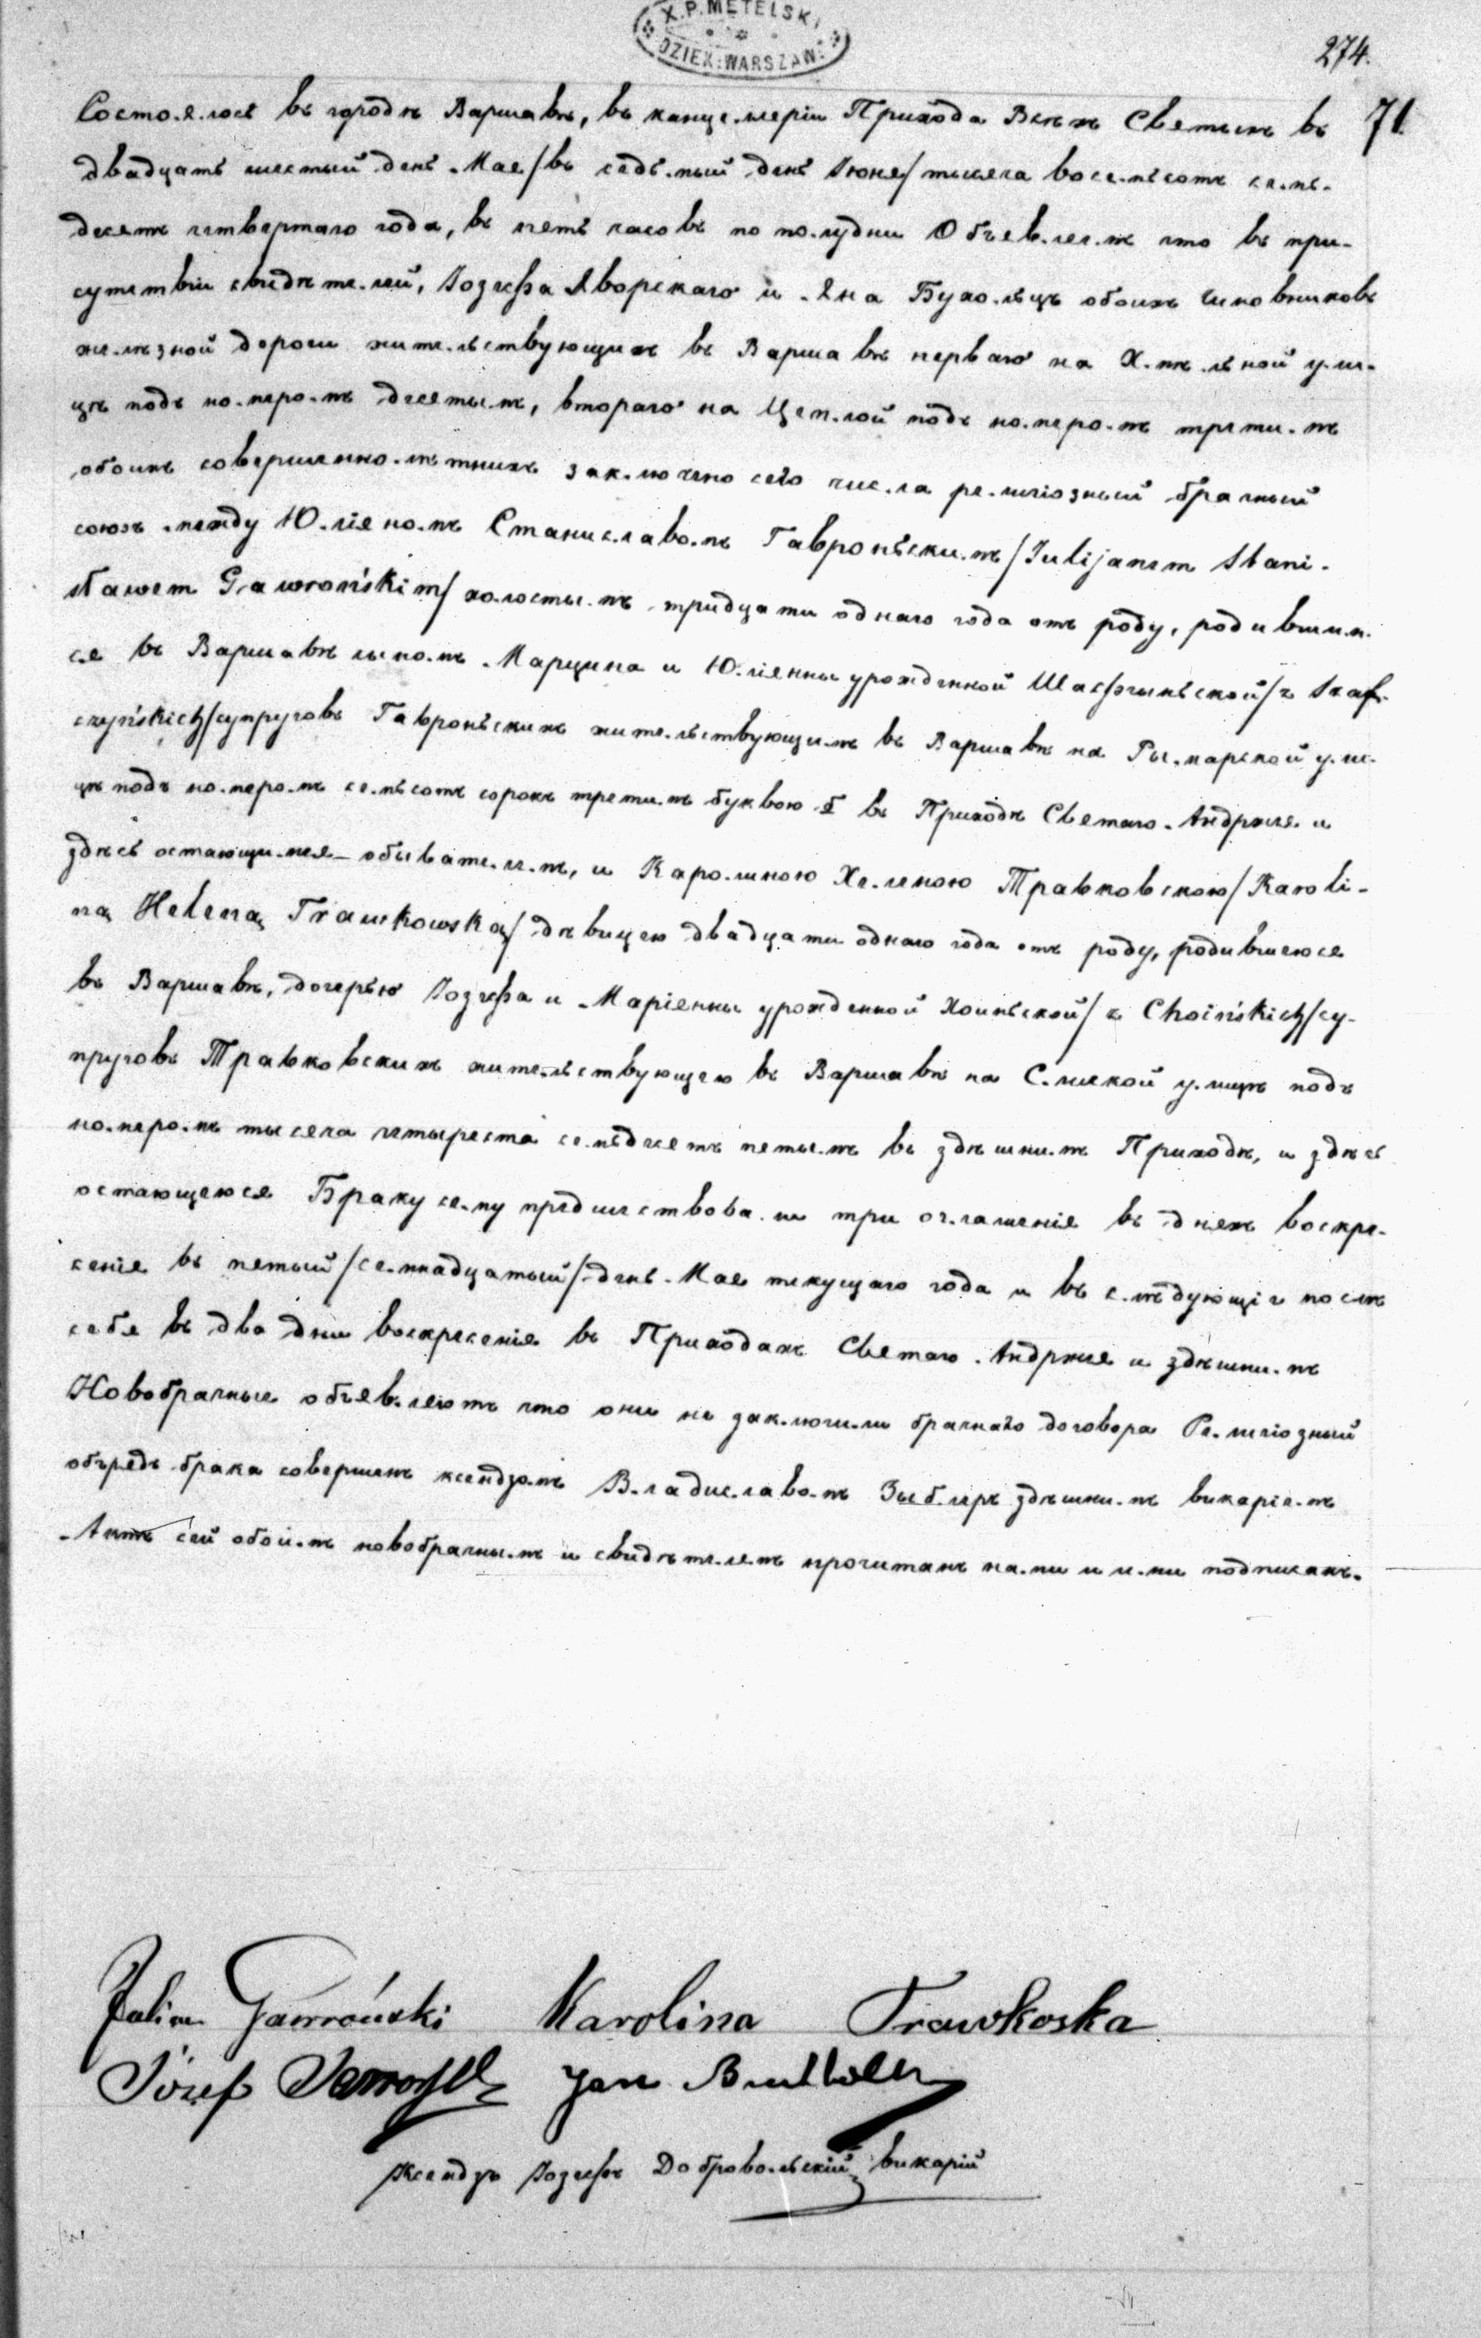 X.P. METELSKI
DZIEK: WARSZAW:
274.
71
Состоялось въ городѣ Варшавѣ, въ канцеляріи Прихода Всѣхъ Святыхъ въ
двадцать шестый день Мая/въ седьмый день Іюня/тысяча восемьсотъ семь-
десятъ четвертаго года, въ пять часовъ по полудни Объявляемъ что въ при-
сутствіи свидѣтелей, Іозефа Яворскаго и Яна Бухольцъ обоихъ чиновниковъ
желѣзной дороги жительствующихъ въ Варшавѣ перваго на Хмѣльной ули-
цѣ подъ номеромъ десятымъ, втораго на Цеплой подъ номеромъ третимъ
обоихъ совершеннолѣтнихъ заключено сего числа религіозный брачный
союзъ между Юліяномъ Станиславомъ Гавроньскимъ/Julijanem Stani-
sławem Gawrońskim/холостымъ тридцати однаго года отъ роду, родившим-
ся въ Варшавѣ сыномъ Марцина и Юліянны урожденной Шафчыньской/z Szaf-
czyńskich/супруговъ Гавроньскихъ жительствующимъ въ Варшавѣ на Рымарской ули-
цѣ подъ номеромъ семьсотъ сорокъ третимъ буквою в Приходѣ Святаго Андржея и
здѣсь остающимся обывателемъ, и Каролиною Хеленою Травковскою/Karoli-
ną Heleną Trawkowską/дѣвицею двадцати однаго года отъ роду, родившеюся
въ Варшавѣ, дочерью Іозефа и Маріянны урожденной Хоиньской/z Choińskich/су-
пруговъ Травковскихъ жительствующею въ Варшавѣ на Слиской улицѣ подъ
номеромъ тысяча четыреста семьдесятъ пятымъ въ здѣшнимъ Приходѣ, и здѣсь
остающеюся Браку сему предшествовали три оглашенія въ дняхъ воскре-
сенія въ пятый/семнадцатый/день Мая текущаго года и въ слѣдующіе послѣ
себя въ два дни воскресенія въ Приходахъ Святаго Андржея и здѣшнимъ
Новобрачные объявляютъ что они не заключили брачнаго договора Религіозный
обрядъ брака совершенъ ксендзомъ Владиславомъ здѣшнимъ викаріемъ
Актъ сей обоимъ новобрачнымъ и свидѣтелямъ прочитанъ нами и ими подписанъ.
Julian Gawroński Karolina Trawkoska
Józef Jan
Ксендзъ Іозефъ Добровольскій викарій